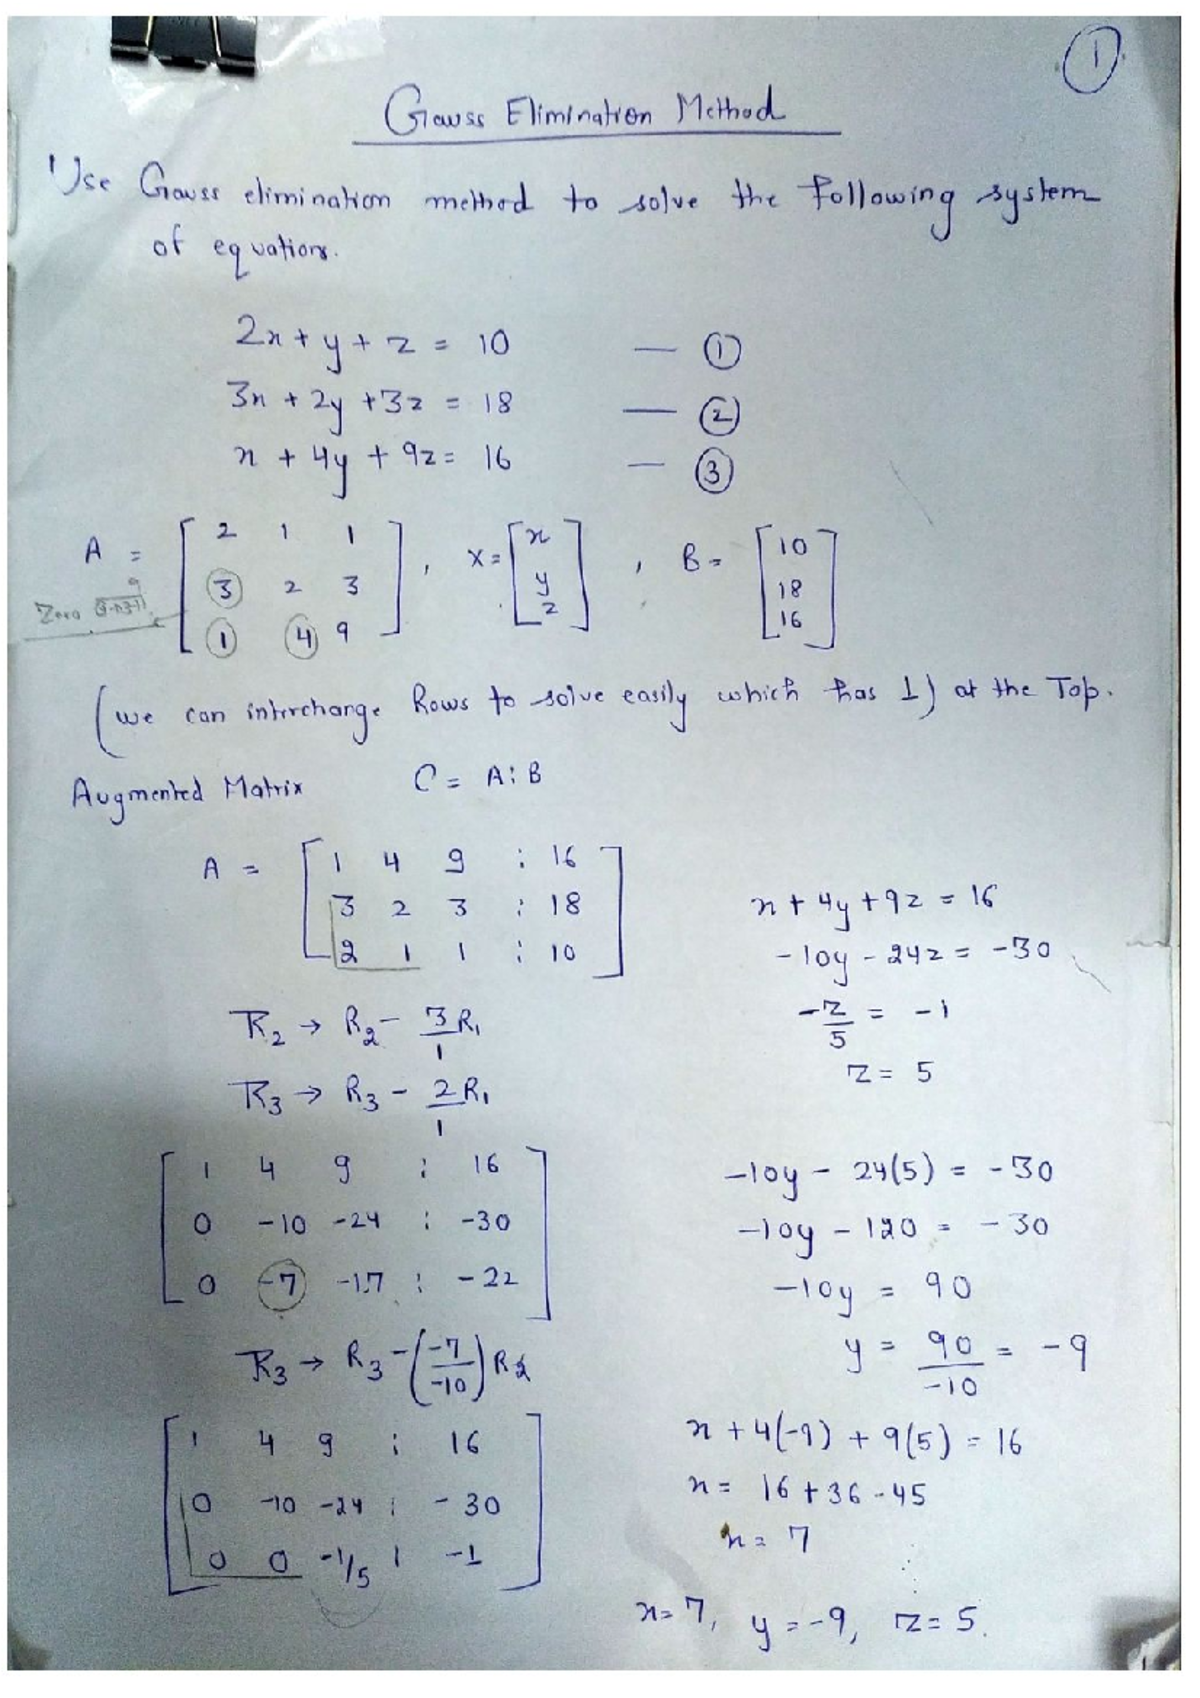 1
Gauss Elimination Method
Use Gauss elimination method to solve the following system
of equations.
2x + y + z = 10 — ①
3x + 2y + 3z = 18 — ②
x + 4y + 9z = 16 — ③
A = [2 1 1], X = [x], B = [10]
[3 2 3] [y] [18]
Zero
[1 4 9] [z] [16]
(we can interchange Rows to solve easily which has 1) at the Top.
Augmented Matrix C = A : B
A = [1 4 9 : 16]
[3 2 3 : 18]
[2 1 1 : 10]
R₂ → R₂ - 3/1 R₁
R₃ → R₃ - 2/1 R₁
[1 4 9 : 16]
[0 -10 -24 : -30]
[0 -7 -17 : -22]
R₃ → R₃ - (-7/-10) R₂
[1 4 9 : 16]
[0 -10 -24 : -30]
[0 0 -1/5 : -1]
x + 4y + 9z = 16
-10y - 24z = -30
-z/5 = -1
z = 5
-10y - 24(5) = -30
-10y - 120 = -30
-10y = 90
y = 90/-10 = -9
x + 4(-9) + 9(5) = 16
x = 16 + 36 - 45
x = 7
x = 7, y = -9, z = 5.